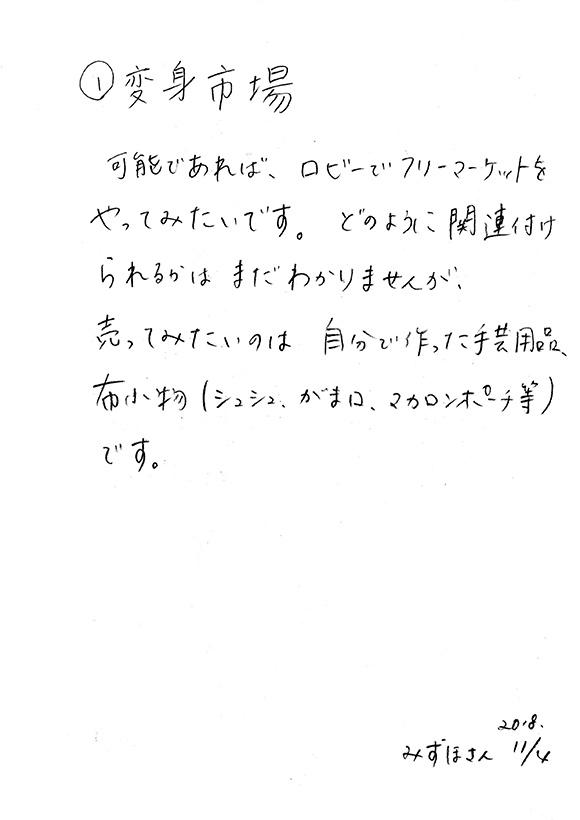 ① 変身市場
可能であれば、ロビーでフリーマーケットを
やってみたいです。どのように関連付け
られるかは まだわかりませんが、
売ってみたいのは 自分で作った手芸用品、
布小物(シュシュ、がま口、マカロンポーチ等)
です。
2018.
みずほさん 11/4